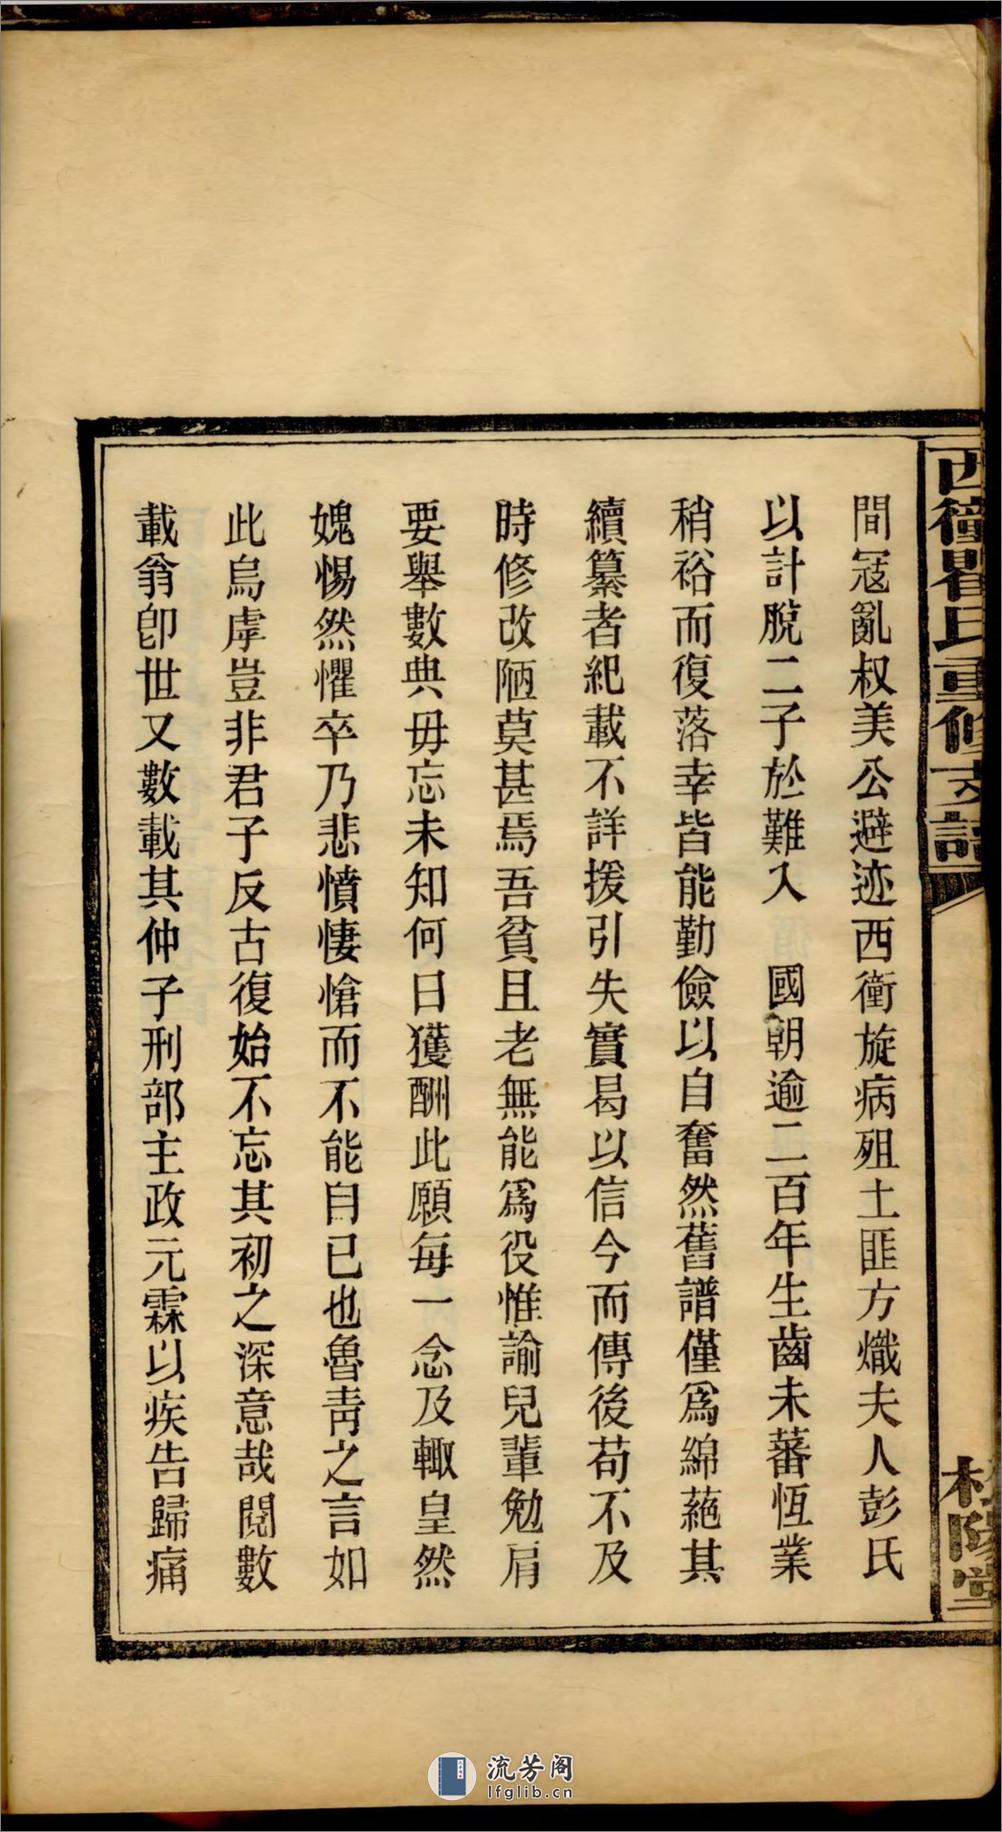 西衝瞿氏重修支譜
間寇亂叔美公避迹西衝旋病殂土匪方熾夫人彭氏
以計脫二子於難入　國朝逾二百年生齒未蕃恆業
稍裕而復落幸皆能勤儉以自奮然舊譜僅爲綿蕝其
續纂者紀載不詳援引失實曷以信今而傳後苟不及
時修改陋莫甚焉吾貧且老無能爲役惟諭兒輩勉肩
要舉數典毋忘未知何日獲酬此願每一念及輙皇然
媿惕然懼卒乃悲憤悽愴而不能自已也魯靑之言如
此烏虖豈非君子反古復始不忘其初之深意哉閱數
載翁卽世又數載其仲子刑部主政元霖以疾告歸痛
陽堂
流芳阁
lfglib.cn